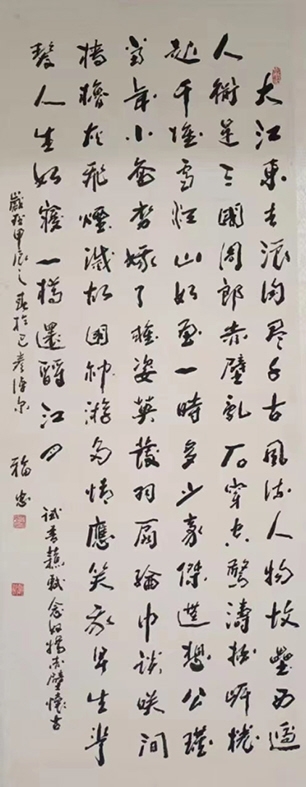 大江東去浪淘盡千古風流人物故壘西邊
人道是三國周郎赤壁亂石穿空驚濤拍岸捲
起千堆雪江山如畫一時多少豪傑遙想公瑾
當年小喬初嫁了雄姿英發羽扇綸巾談笑間
檣櫓灰飛煙滅故國神游多情應笑我早生華
髮人生如寢一樽還酹江月
試書蘇軾念奴嬌赤壁懷古
甲辰之春於
福忠